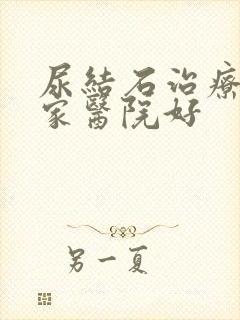 尿結石治療
家醫院好
另一夏